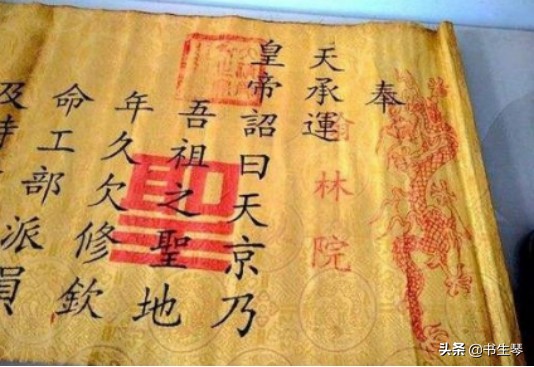 奉
天承運
皇帝詔曰天京乃
吾祖之聖地
年久欠修欽
命工部派員
及
翰林院
头条 @书生琴